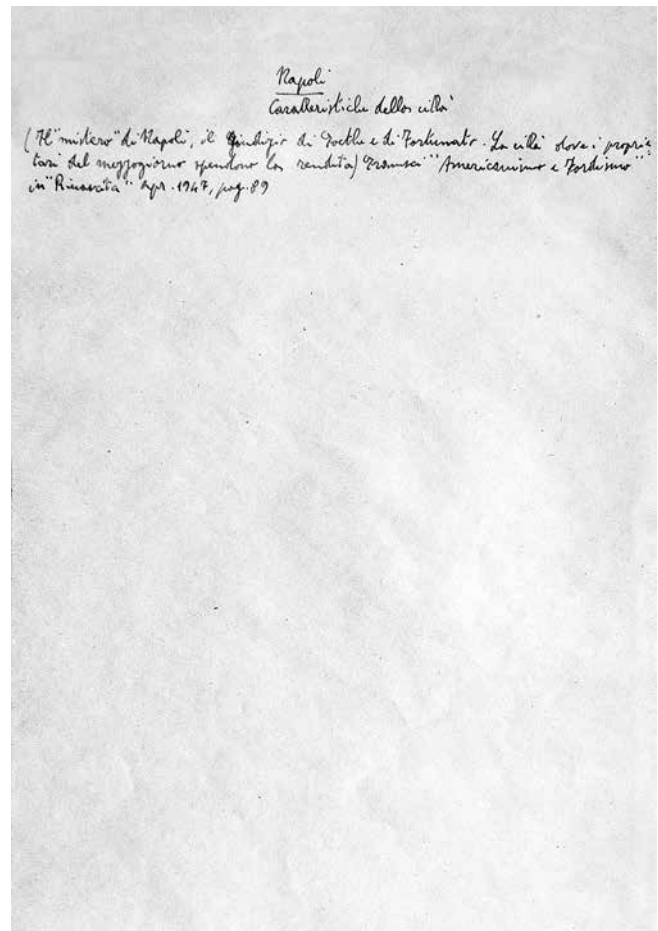 Napoli
Caratteristiche della città
(Il "mistero" di Napoli, il giudizio di Goethe e di Fortunato. La città dove i proprie
tari del mezzogiorno spendono la rendita) Gramsci "Americanismo e Fordismo"
in "Rinascita" apr. 1947, pag. 89